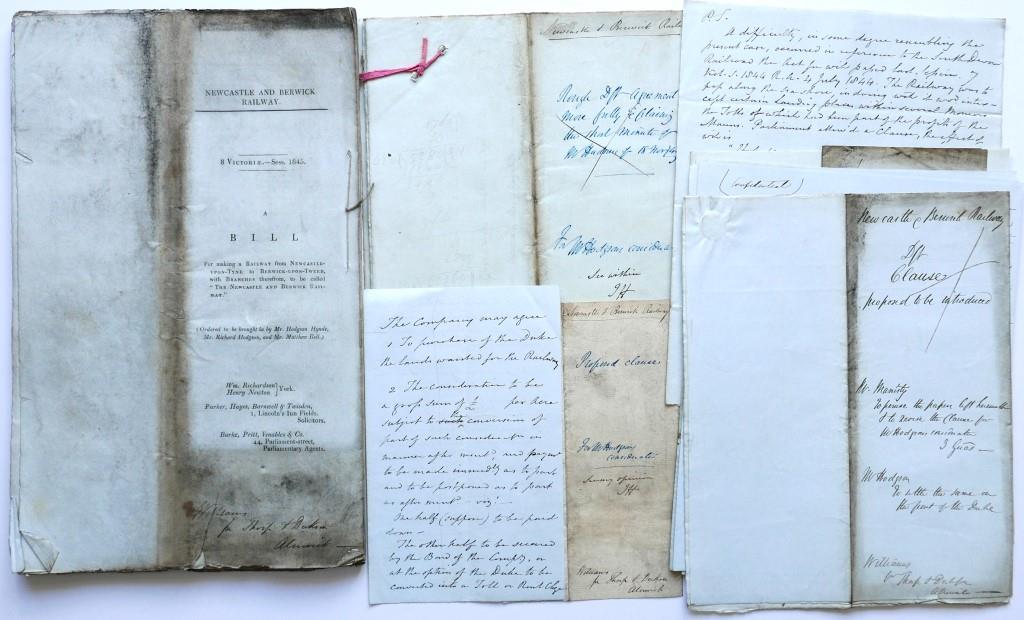 NEWCASTLE AND BERWICK
RAILWAY.
8 VICTORIÆ.—Sess. 1845.
A
BILL
For making a RAILWAY from NEWCASTLE-
UPON-TYNE to BERWICK-UPON-TWEED,
with BRANCHES therefrom, to be called
"THE NEWCASTLE AND BERWICK RAIL-
WAY."
(Ordered to be brought in by Mr. Hodgson Hinde,
Mr. Richard Hodgson, and Mr. Matthew Bell.)
Wm. Richardson
Henry Newton } York.
Parker, Hayes, Barnwell & Twisden,
1, Lincoln's Inn Fields,
Solicitors.
Burke, Pritt, Venables & Co.
44, Parliament-street,
Parliamentary Agents.
Williams
for Thorp & Dickson
Alnwick
Newcastle & Berwick Railw
Rough Dft Agreement
more fully
the Heads minute of
Mr Hudson of 18 Nov
For Mr Hodgsons consideration
See within
The Company may agree
1 To purchase of the Duke
the lands wanted for the Railway
2 The consideration to be
a gross sum of £ per Acre
subject to such conversion of
part of such consideration in
manner after ment^d, and payment
to be made immed^ly as to part
and to be postponed as to part
as after ment^d – viz^t
One half (suppose) to be paid
down –
The other half to be secured
by the Bond of the Comp^y, or
at the option of the Duke to be
converted into a Toll or Rent Chge
Newcastle & Berwick Railway
Proposed clause
For Mr Hodgsons
consideration
opinion
Williams
for Thorp & Dickson
Alnwick
P.S.
A difficulty, in some degree resembling the
present case, occurred in reference to the South Devon
Railroad the Act for w^ch passed last Session 7
Vict. S. 1844 R.A. 4 July 1844. The Railway was to
pass along the Sea Shore, in doing which it would inter-
cept certain Landing places within several Manors
the Tolls of which had been part of the profits of the
Manors. Parliament allowed a Clause, the effect of
wch is
(Confidential)
Newcastle & Berwick Railway
Dft
Clause
proposed to be introduced
Mr Manisty
To peruse the papers left herewith
& to revise the Clause for
Mr Hodgsons consideration
3 Guas –
Mr Hodgson
To settle the same on
the part of the Duke
Williams
for Thorp & Dickson
Alnwick